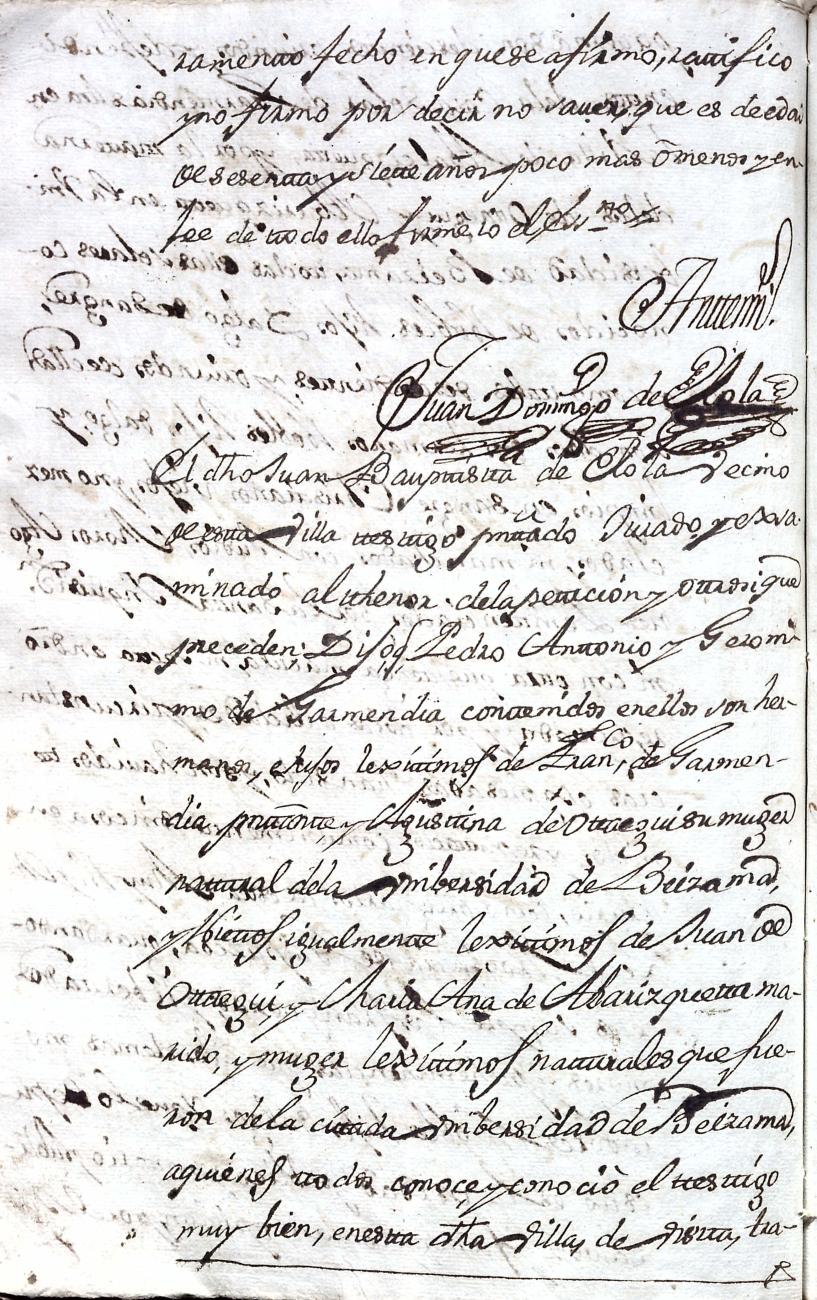 ramentto fecho en que se afirmo, rattifico
y no firmo por decir no saver, que es de edad
de sesentta y siette años poco mas ô menos y en
fee de ttodo ello firme, io el Ess.no
Anttemi.
Juan Domingo de Olola
El dho Juan Bapttistta de Olola vecino
de estta villa ttesttigo pnttado Jurado, y exsa-
minado al thenor de la petticion y ottrosi que
preceden: Dijo q Pedro Anttonio y Geroni-
mo de Garmendia conttenidos en ellos son her-
manos, e hijos lexittimos de Fran.co de Garmen-
dia pnttentte, y Agusttina de Ottaegui su muger
nattural de la Vnibersidad de Beizama,
y Niettos igualmentte lexittimos de Juan de
Ottaegui, y Maria Ana de Abarizquetta ma-
rido, y muger lexittimos natturales que fue-
ron de la cittada Vnibersidad de Beizama,
a quienes ttodos conoce, y conociô el ttesttigo
muy bien, en estta dha villa, de vistta, tra-